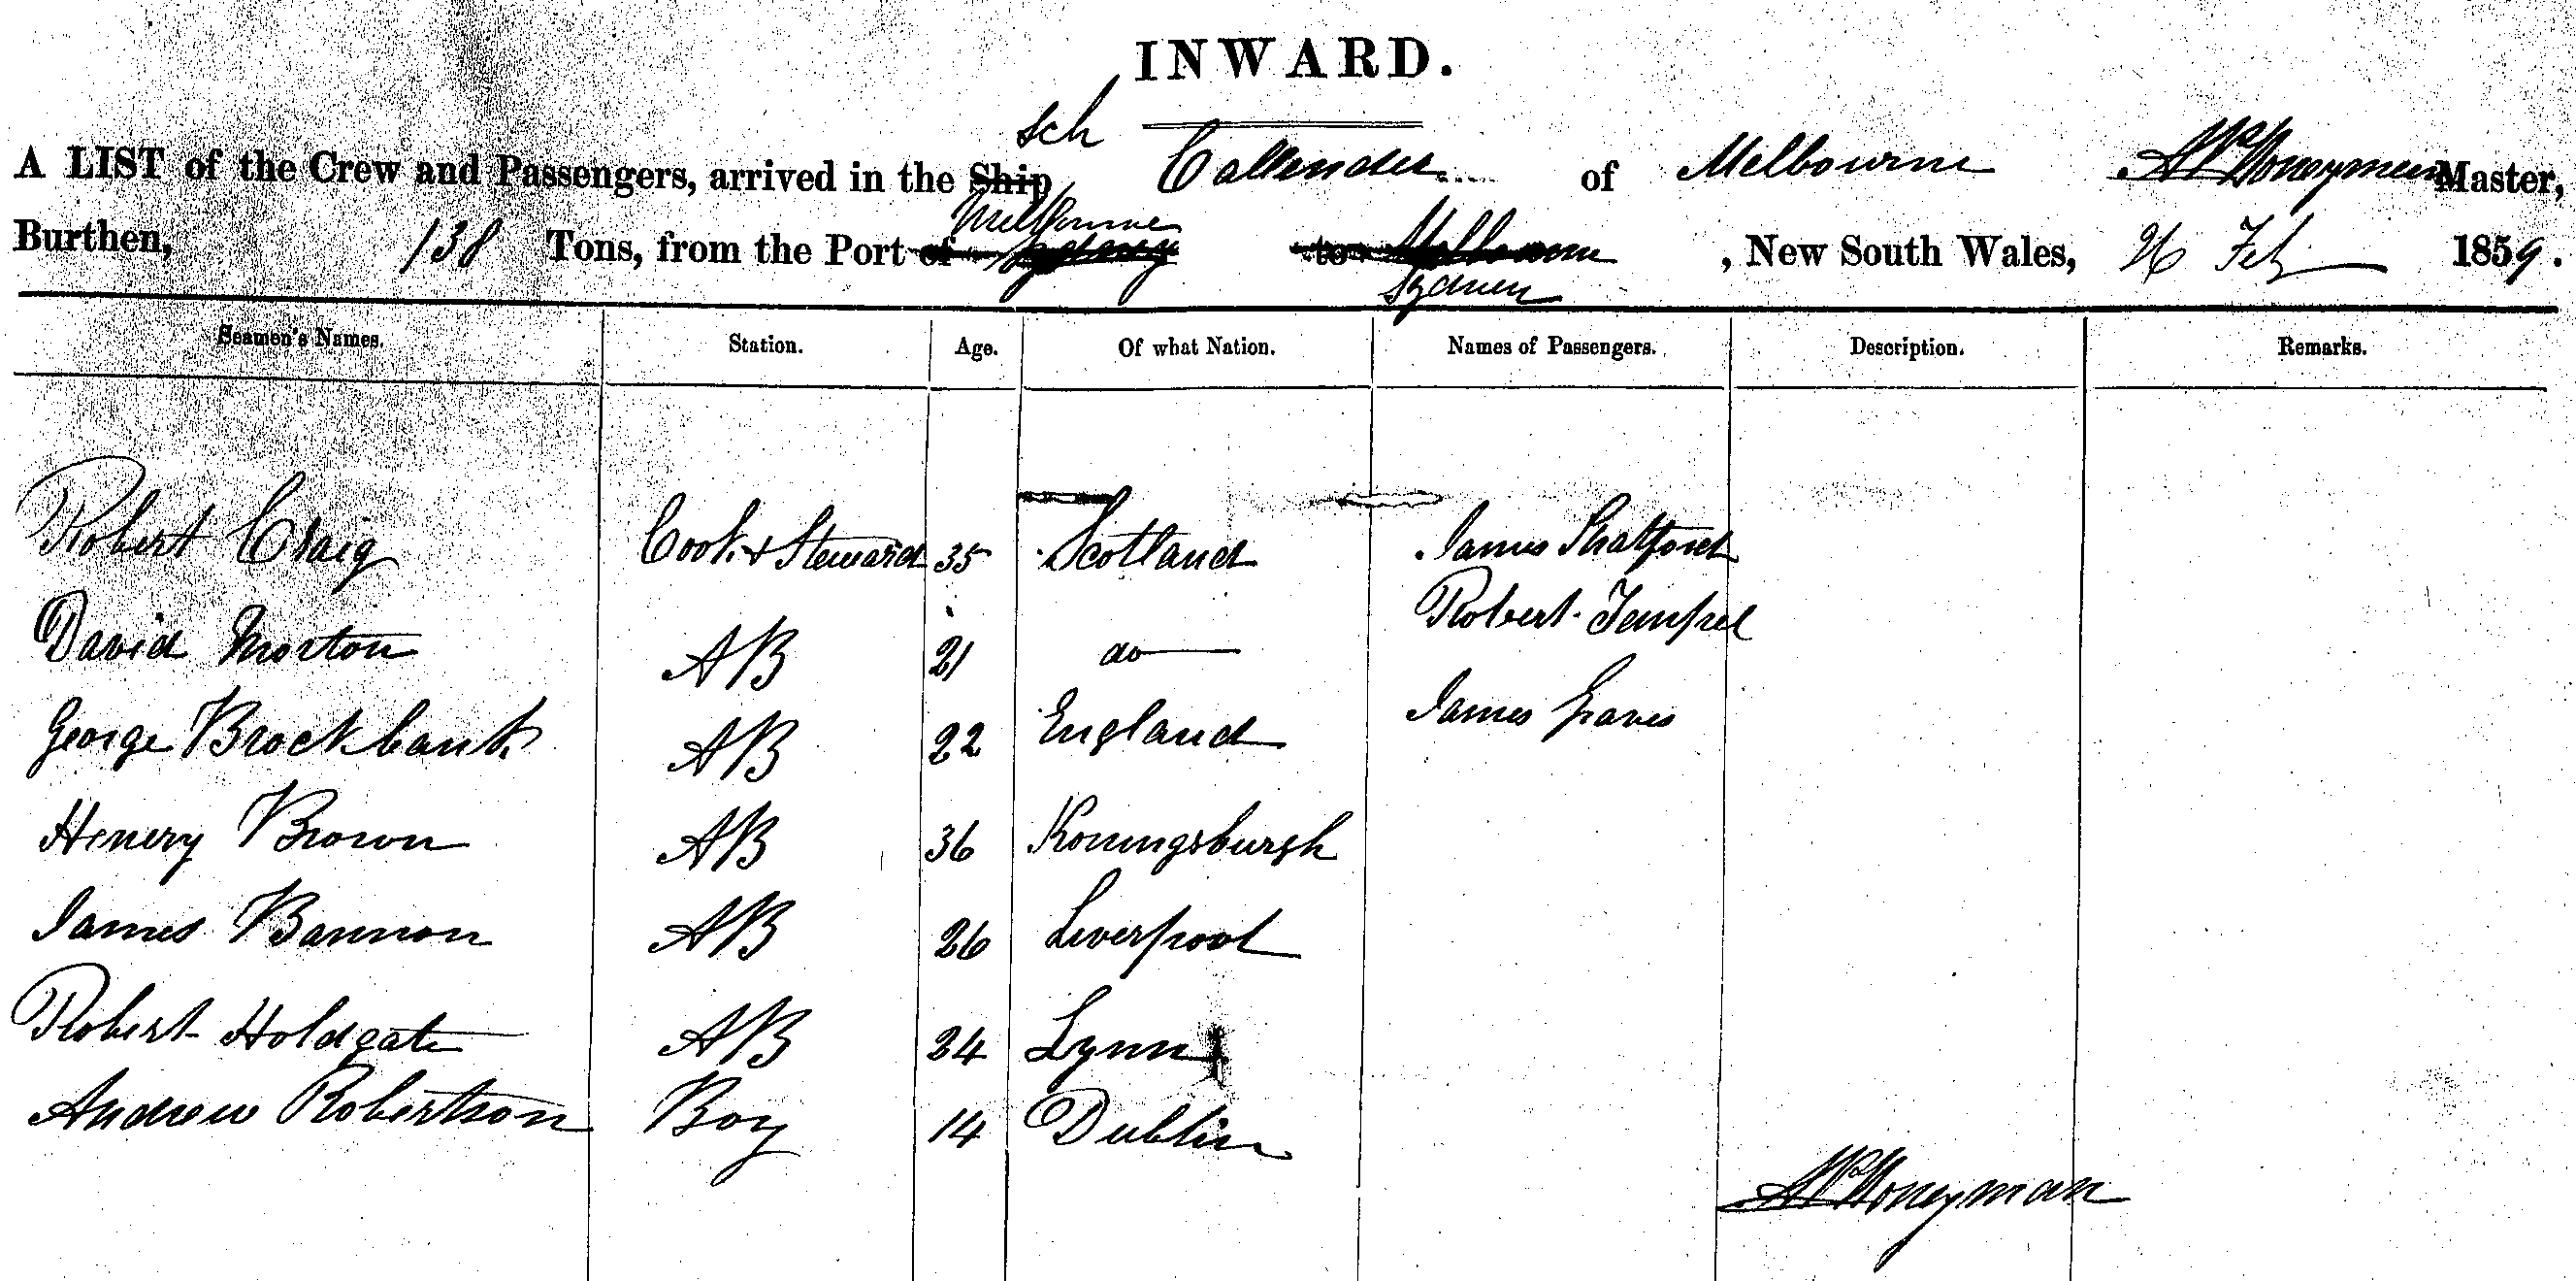 INWARD.
sch
A LIST of the Crew and Passengers, arrived in the Ship Callender of Melbourne Honeyman Master,
Melbourne
Burthen, 138 Tons, from the Port of Sydney to Melbourne, New South Wales, 26 Feb 1859.
Sydney
Seamen's Names. Station. Age. Of what Nation. Names of Passengers. Description. Remarks.
Robert Craig Cook & Steward 35 Scotland James Shatford
Robert Tempel
David Morton AB 21 do
George Brockbank AB 22 England James Graves
Henery Brown AB 36 Koningsburgh
James Bannon AB 26 Liverpool
Robert Holdgate AB 24 Lynn
Andrew Robertson Boy 14 Dublin
Honeyman